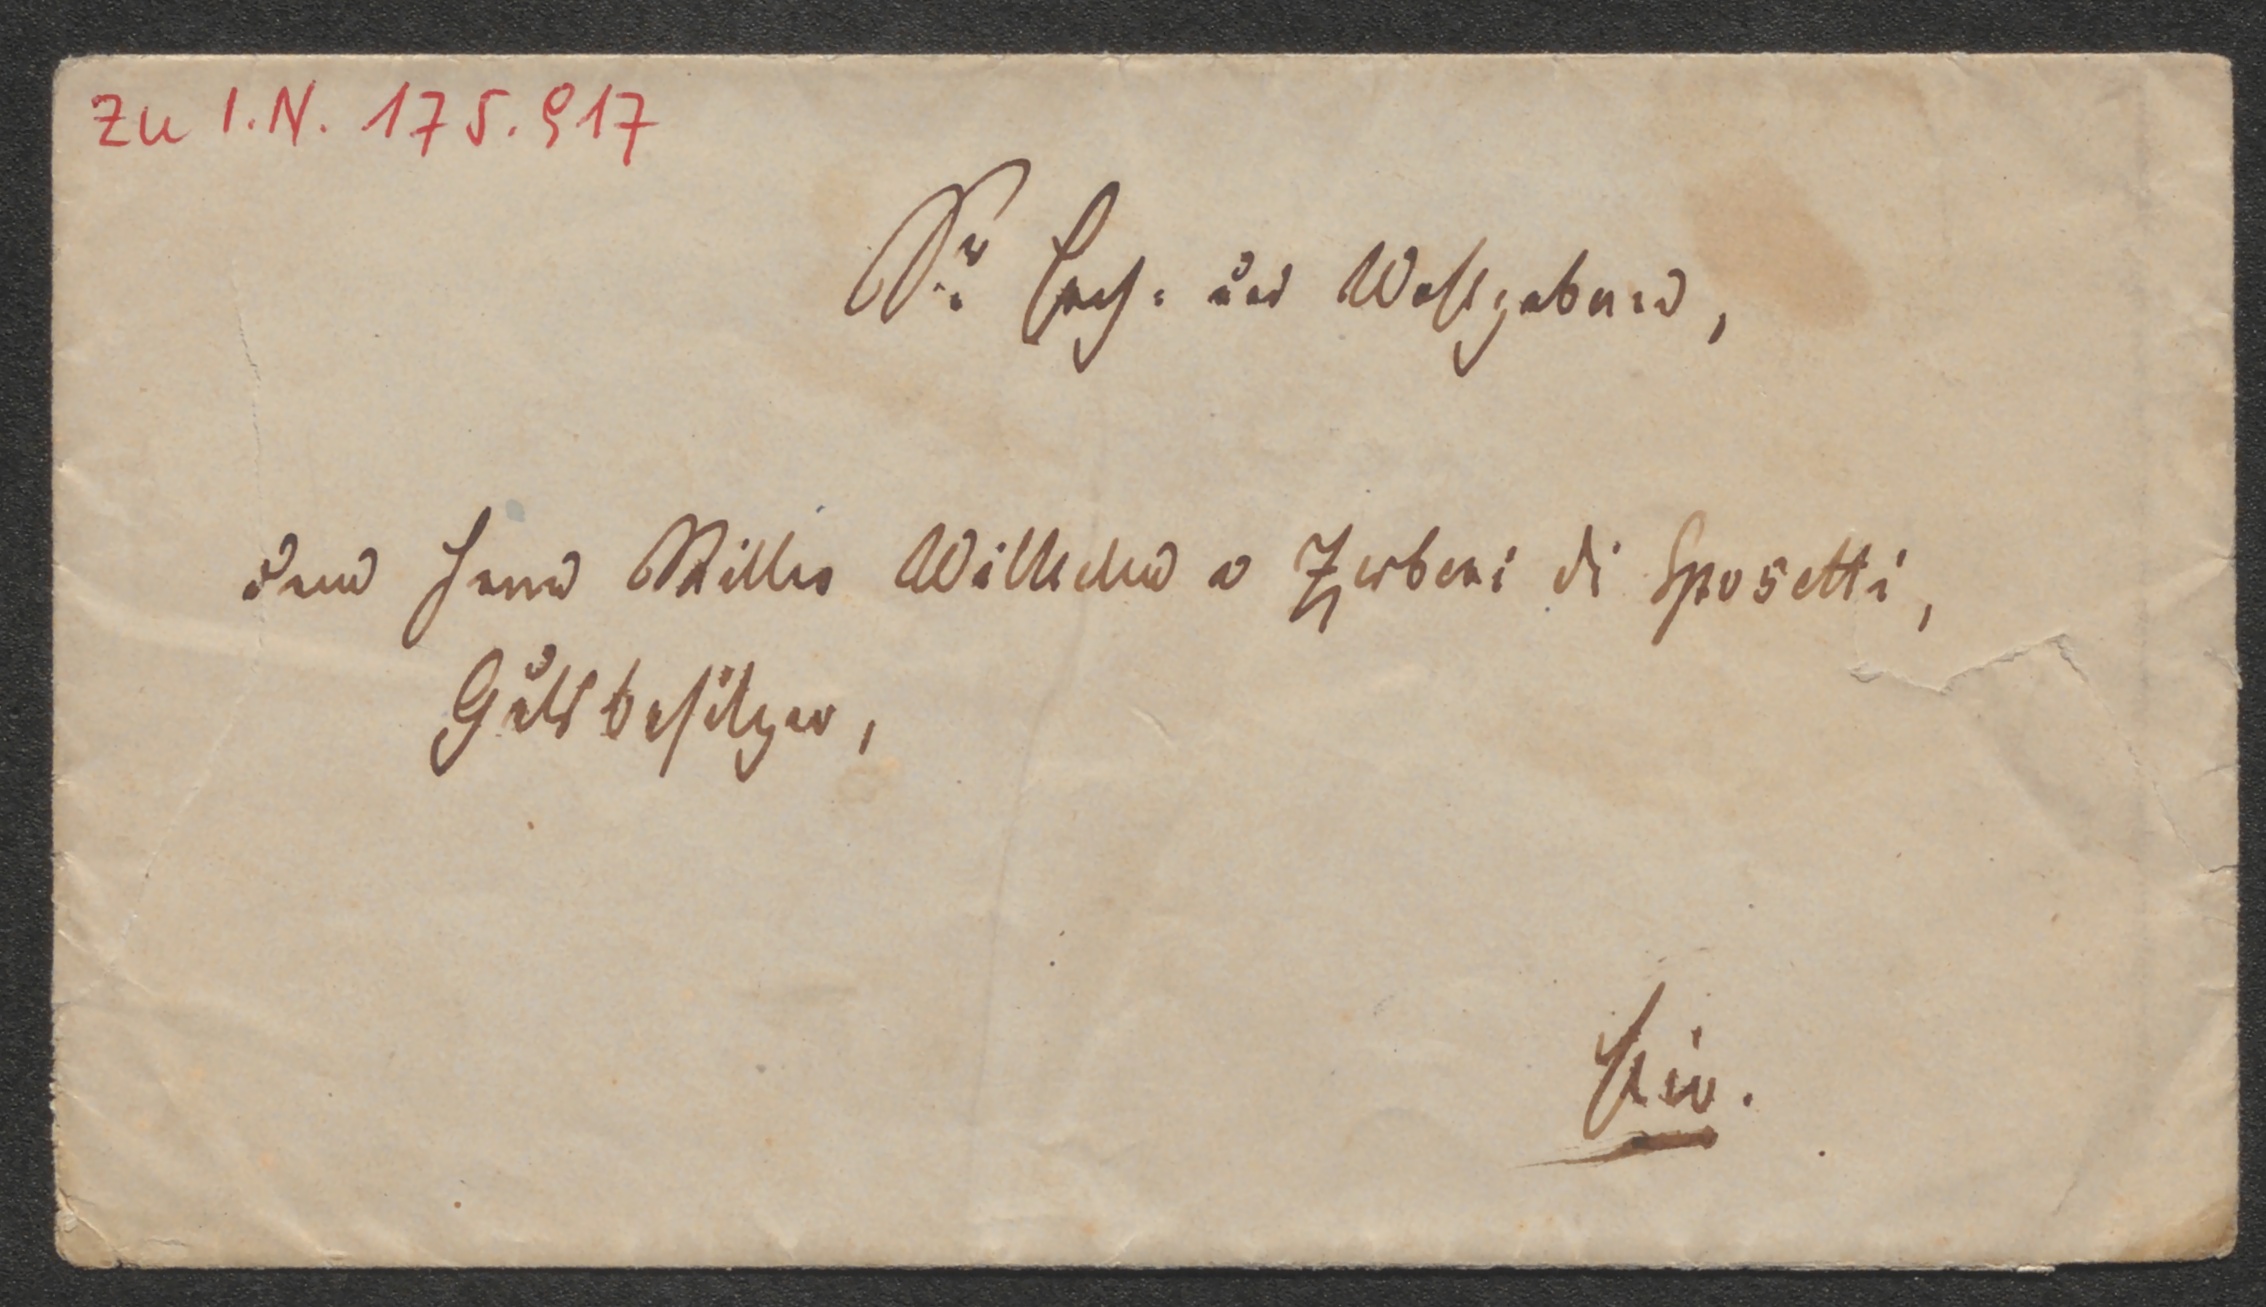 Zu I.N. 175.917
Sr Hoch- und Wohlgeboren,
dem Herrn Ritter Wilhelm v Zerboni di Sposetti,
Gutsbesitzer,
hier.